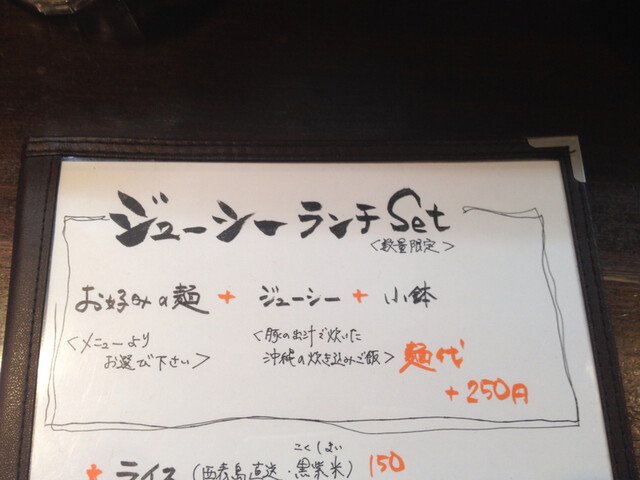 ジューシーランチSet
<数量限定>
お好みの麺 + ジューシー + 小鉢
<メニューより
お選び下さい>
<豚のお汁で炊いた
沖縄の炊き込みご飯>
麺代
+250円
こくしまい
+ ライス (西表島直送・黒紫米) 150